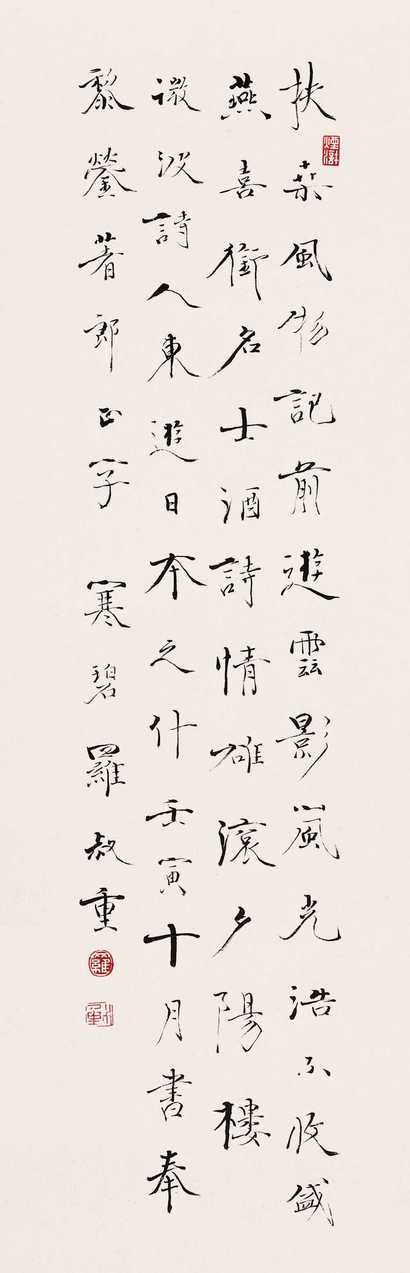 扶桒風物記前遊雲影嵐光浩不收盛
燕喜銜名士酒詩情碓滾夕陽樓
澂波詩人東遊日本之什壬寅十月書奉
黎簥著郎正字 寒碧羅叔重